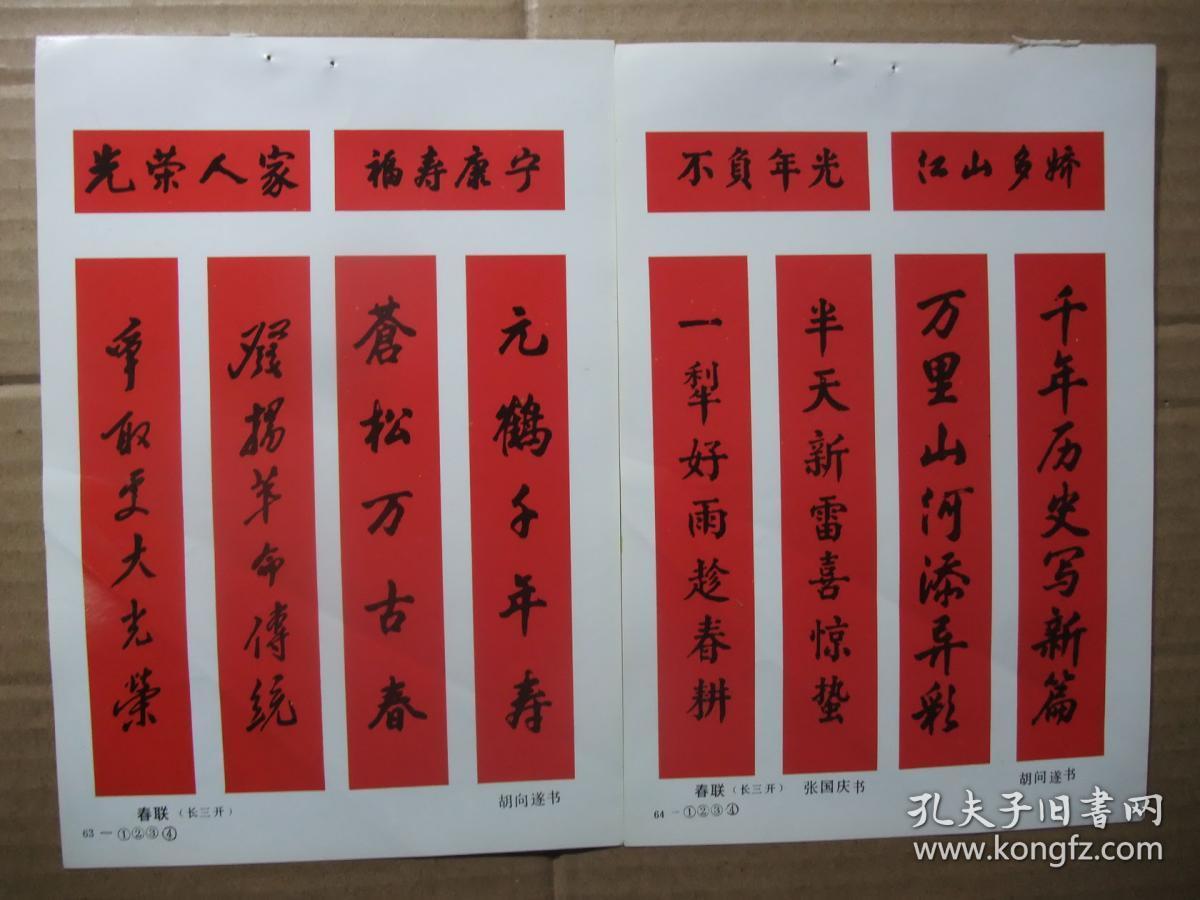 光荣人家
福寿康宁
發揚革命傳統
争取更大光榮
元鶴千年寿
蒼松万古春
春联（长三开）
胡问遂书
63—①②③④
不負年光
江山多娇
千年历史写新篇
万里山河添异彩
半天新雷喜惊蛰
一犁好雨趁春耕
春联（长三开）
张国庆书
胡问遂书
64—①②③④
孔夫子旧書网
www.kongfz.com